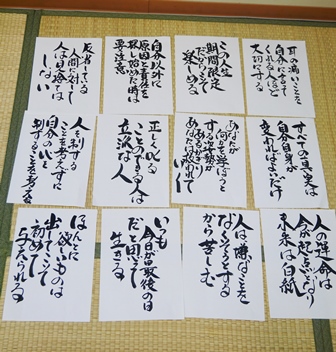 耳の痛いことを
自分に言って
くれる人ほど
大切にする
この人生
期間限定
だからこそ
楽しめる
自分以外に
原因と責任を
探し始めた時は
要注意
反省している
人間に対して
人は
しない
すべての真実は
自分自身が
変わればよいだけ
あなたが
何かを学ぼうと
する姿勢が
あるかぎり
正しく叱る
ことのできる人は
立派な人
人を制する
ことを考えずに
自分の心を
制することを考える
人の運命は
今が起点となり
未来は白紙
人は嫌なことを
なくそうとする
から苦しむ
いつも
今日が最後の日
だと思って
生きる
ほんとに
欲しいものは
出てこって
初めて
与えられる